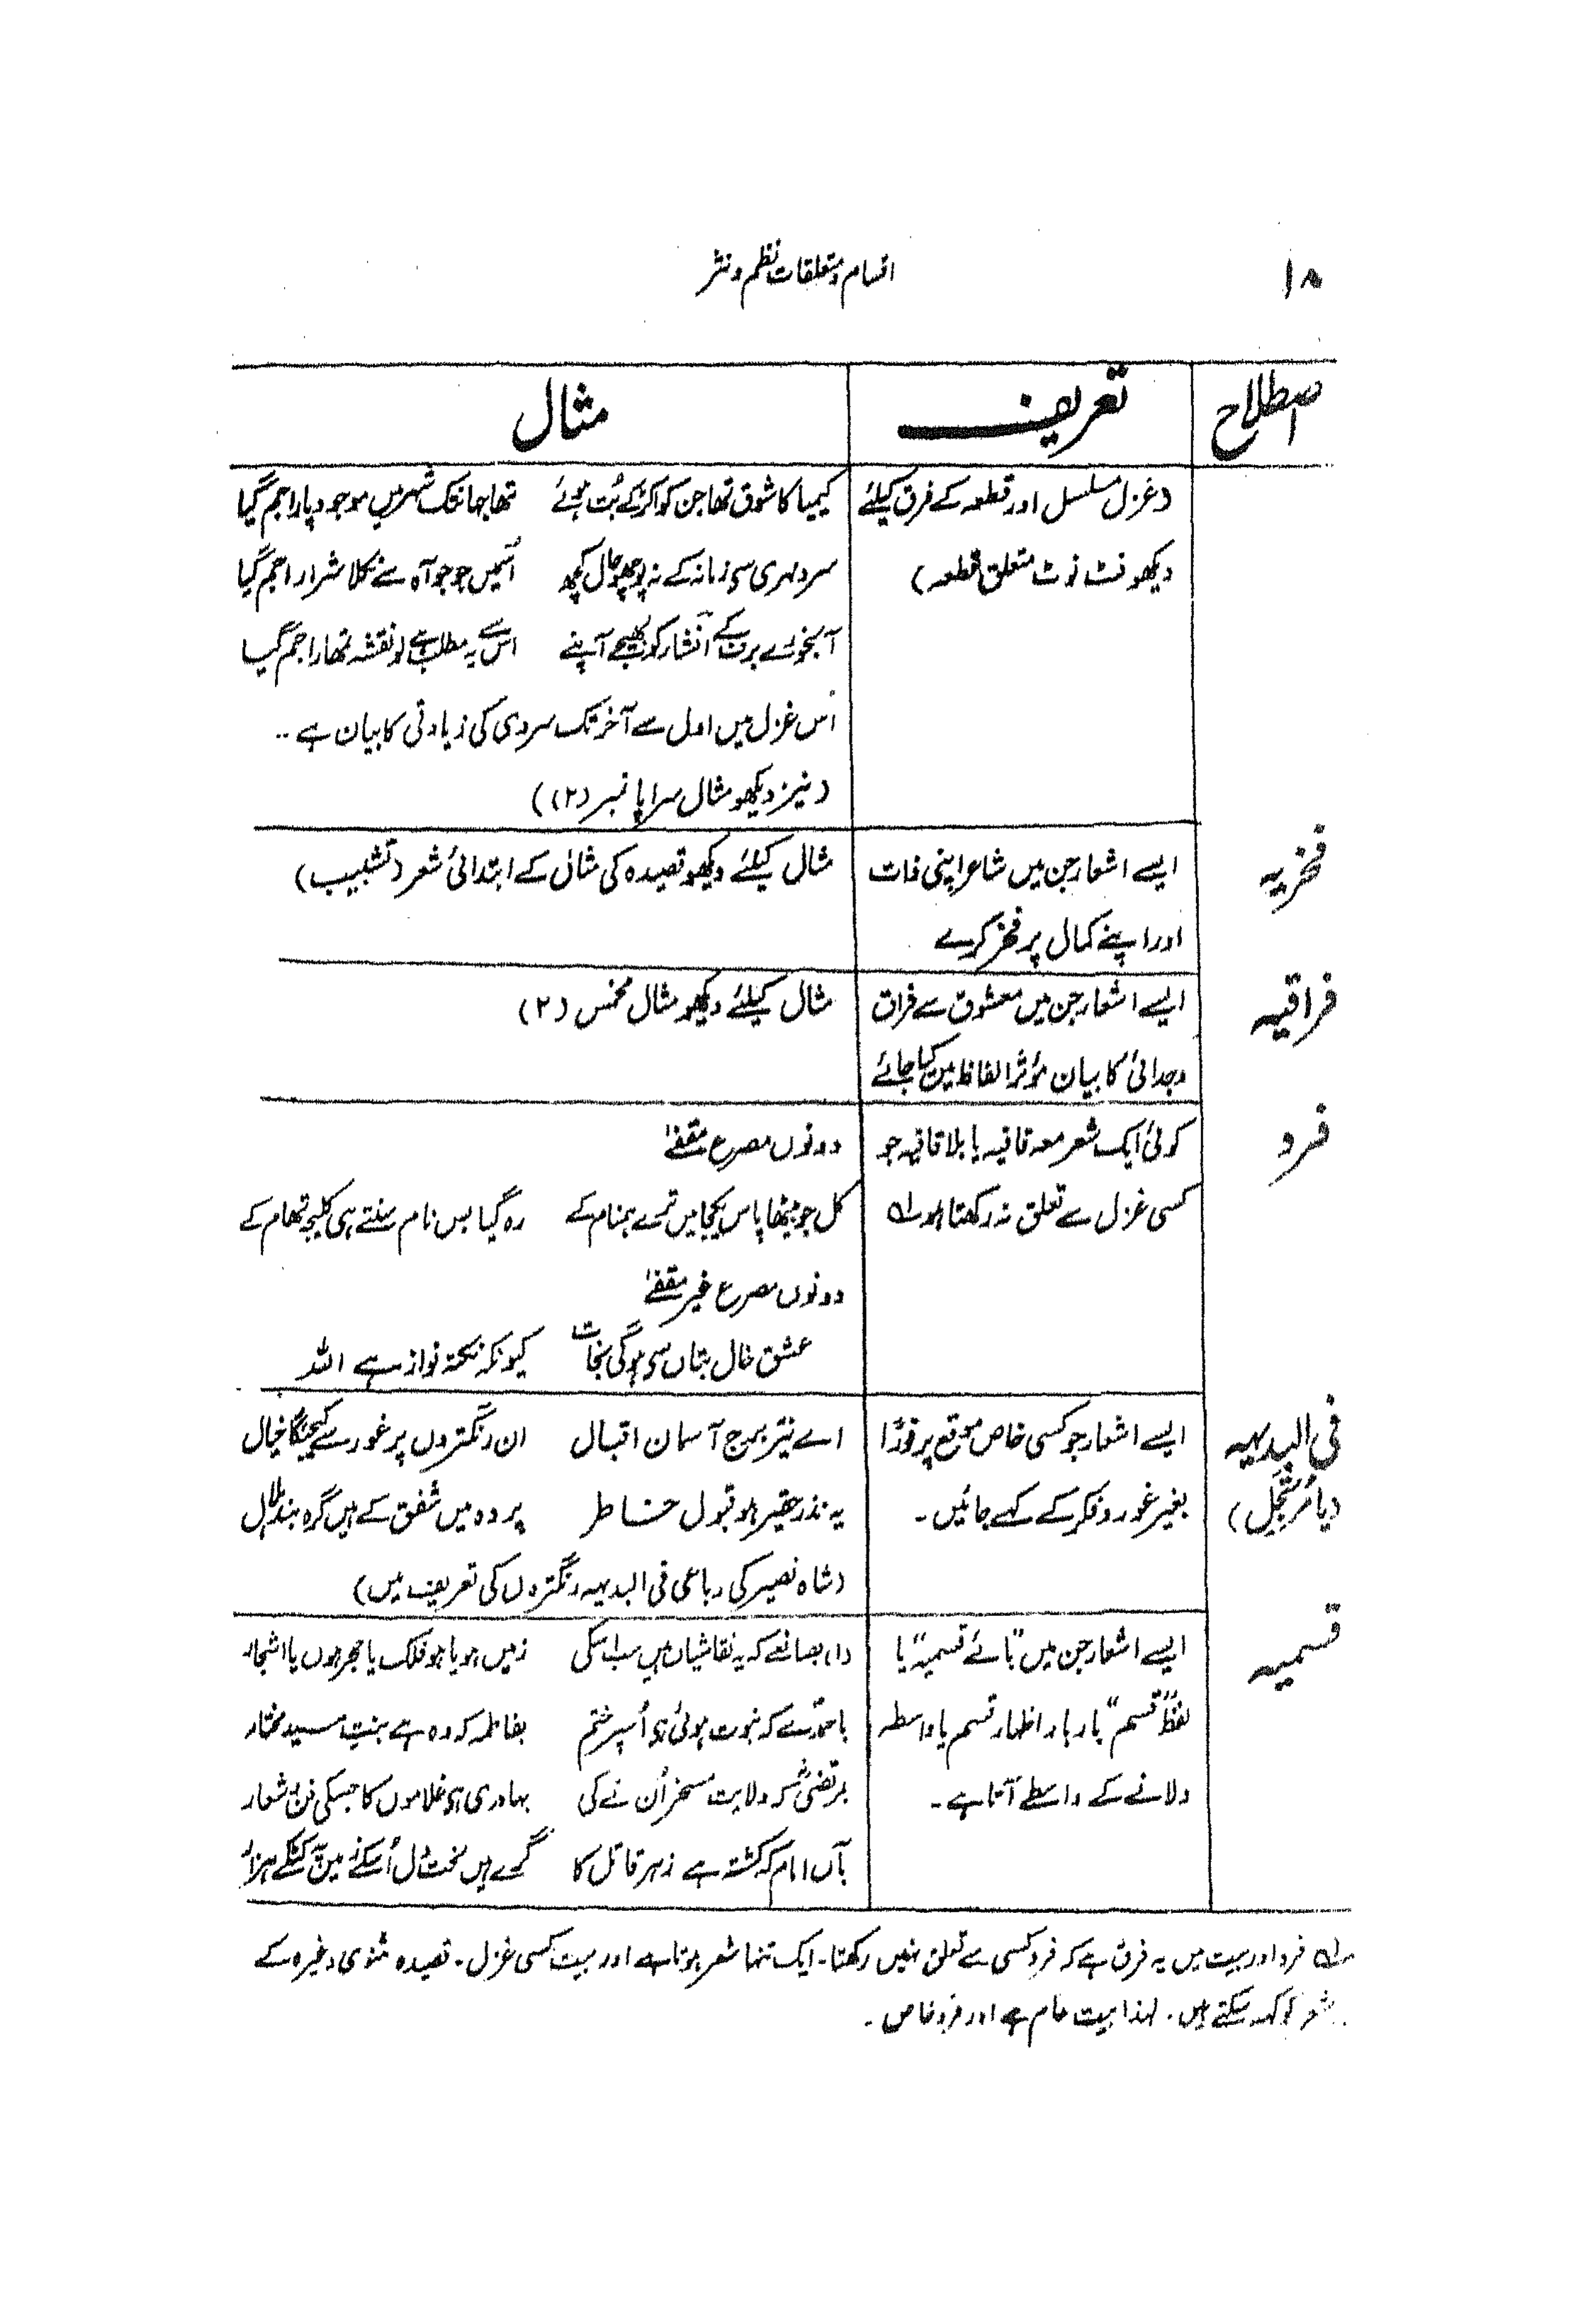 ۱۸
اقسام و متعلقات نظم و نثر
اصطلاح
تعریف
مثال
(غزل مسلسل اور قطعہ کے فرق کیلئے
دیکھو فٹ نوٹ متعلق قطعہ)
کیمیا کا شوق تھا جن کو اکڑ کے بُت ہوئے تھا جہانتک شہر میں موجود پارا جم گیا
سرد مہری سی زمانہ کے نہ پوچھو حال کچھ اسمیں جو جو آہ سے نکلا شرارا جم گیا
آبخورے برف کے انشا کو بھیجے آپنے اس سے یہ مطلب ہے لو نقشہ تمھارا جم گیا
اس غزل میں اول سے آخر تک سردی کی زیادتی کا بیان ہے ۔۔
(نیز دیکھو مثال سراپا نمبر (۲))
فخریہ
ایسے اشعار جن میں شاعر اپنی ذات
اور اپنے کمال پر فخر کرے
مثال کیلئے دیکھو قصیدہ کی مثال کے ابتدائی شعر (تشبیب)
فراقیہ
ایسے اشعار جن میں معشوق سے فراق
و جدائی کا بیان مؤثر الفاظ میں کیا جائے
مثال کیلئے دیکھو مثال مخمس (۲)
فرد
کوئی ایک شعر معہ قافیہ یا بلا قافیہ جو
کسی غزل سے تعلق نہ رکھتا ہو ؎۱
دونوں مصرع مقفےٰ
کل جو بیٹھا پاس یکجا میں ترے ہمنام کے رہ گیا بس نام سنتے ہی کلیجہ تھام کے
دونوں مصرع غیر مقفےٰ
عشق خال بتاں سی ہوگی نجات کیونکہ نکتہ نواز ہے اللہ
فی البدیہہ
(یا مُرتَجَل)
ایسے اشعار جو کسی خاص موقع پر فوراً
بغیر غور و فکر کے کہے جائیں ۔
اے نیّر برج آسمان اقبال ان رنگتروں پر غور سے کیجئگا خیال
یہ نذر حقیر ہو قبول خاطر پردہ میں شفق کے ہیں گرہ بند ہلال
(شاہ نصیر کی رباعی فی البدیہہ رنگتروں کی تعریف میں)
قسمیہ
ایسے اشعار جن میں "بائے قسمیہ" یا
لفظ "قسم" بار بار اظہار قسم یا واسطہ
دلانے کے واسطے آتا ہے ۔
(۱) بصانعے کہ یہ نقاشیاں ہیں سب اسکی زمیں ہو یا ہو فلک یا حجر ہوں یا اشجار
باحمدے کہ نبوت ہوئی ہی اُسپر ختم بفاطمہ کہ وہ ہے بنت سید مختار
بمرتضیٰ کہ ولایت مسخر اُن نے کی بہادری ہی غلاموں کا جسکی فن و شعار
بآں امام کہ کشتہ ہے زہر قاتل کا گرے ہیں لخت دل اُسکے زمین پہ کٹکے ہزار
؎۱ فرد اور بیت میں یہ فرق ہے کہ فرد کسی سے تعلق نہیں رکھتا ۔ ایک تنہا شعر ہوتا ہے اور بیت کسی غزل ۔ قصیدہ مثنوی وغیرہ کے
شعر کو کہہ سکتے ہیں ۔ لہذا بیت عام ہے اور فرد خاص ۔